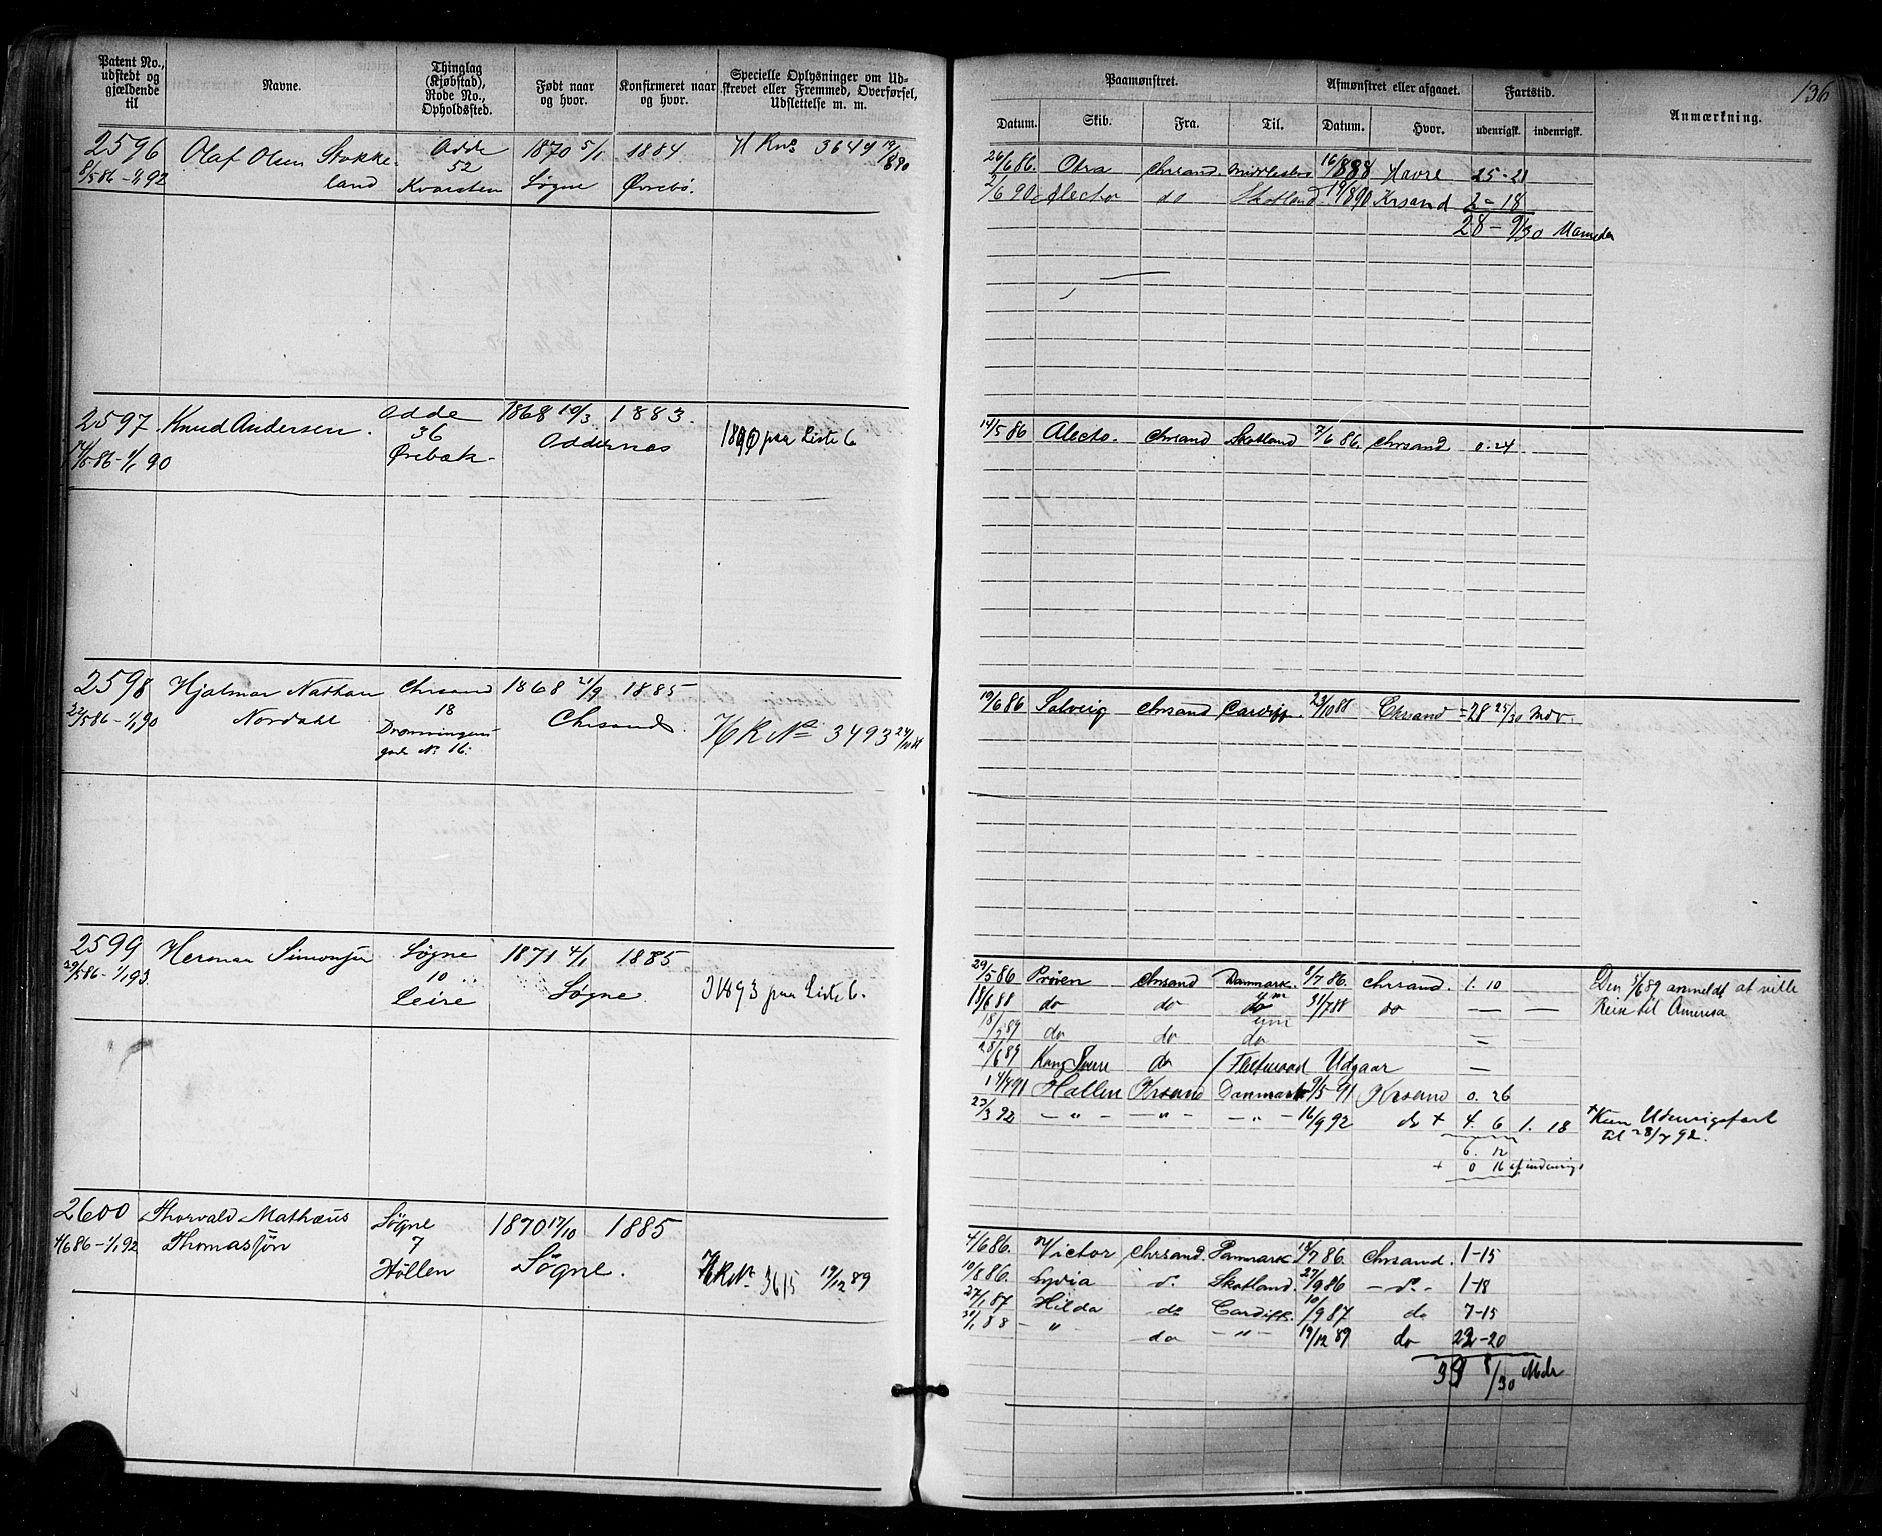 136
Patent No., udstedt og gjældende til
Navne.
Thinglag (Kjøbstad), Rode No., Opholdssted.
Født naar og hvor.
Konfirmeret naar og hvor.
Specielle Oplysninger om Udskrevet eller Fremmed, Overførsel, Udslettelse m. m.
Paamønstret.
Afmønstret eller afgaaet.
Fartstid.
Anmærkning.
Datum. Skib. Fra. Til. Datum. Hvor. udenrigsk. indenrigsk.
2596 Olaf Olsen Stokke- Odde 1870 5/1 1884 3644 19/8 90
8/5 86 - 1/1 92 land 52
Kvarsten Søgne Øvrebø.
26/6 86. Otra Chrsand. 16/8 88 Havre 25-21
2/6 90 Alecto do Skotland 19/8 90 Krsand 2-18
28 - 9/30 Maaneder
2597 Knud Andersen. Odde 1868 10/3 1883.
14/5 86 - 1/1 90 36 Oddernæs
Ørebæk 1890 paa Liste 6
14/5 86 Alecto. Chrsand Skotland 7/6 86. Chrsand 0.24
2598 Hjalmar Nathan Chrsand 1868 21/9 1885
22/5 86 - 1/1 90 Nordahl 18 Chrsand.
Dronningens
gade No 16. HR No 3493 24/10 88
19/6 86 Solveig Chrsand Cardiff. 23/10 88 Chrsand = 28 25/30 Mdr.
2599 Herman Simonsen Søgne 1871 4/1 1885
29/5 86 - 1/1 93 10 Søgne
Leire 1893 paa Liste 6.
29/5 86 Prøven Chrsand Danmark. 8/7 86. Chrsand. 1. 10 Den 5/6 89 anmeldt at ville
18/6 88 do do do 31/7 88 do — — Reise til Amerika
do do do
28/6 89 Kong Sverre do Fleetwood Udgaar —
14/4 91 Hallen Krsand Danmark 9/5 91 Krsand 0. 26
23/3 92 - " - - " - - " - 16/9 92 do + 4. 6 1. 18 + Kun Udenrigsfart
til 28/7 92.
6. 12
+ 0 16 af indenrigs
2600 Thorvald Mathæus Søgne 1870 17/10 1885
4/6 86 - 1/1 92 Thomassøn 7 Søgne.
Høllen HR No 3615 19/12 89
4/6 86. Victor Chrsand. Danmark 18/7 86. Chrsand. 1-15
10/8 86. Lydia do Skotland. 27/9 86 - do - 1-18
27/1 87 Hilda do Cardiff. 10/9 87 do 7-15
" do - " - 19/12 89 do 22-20
33 8/30 Mdr